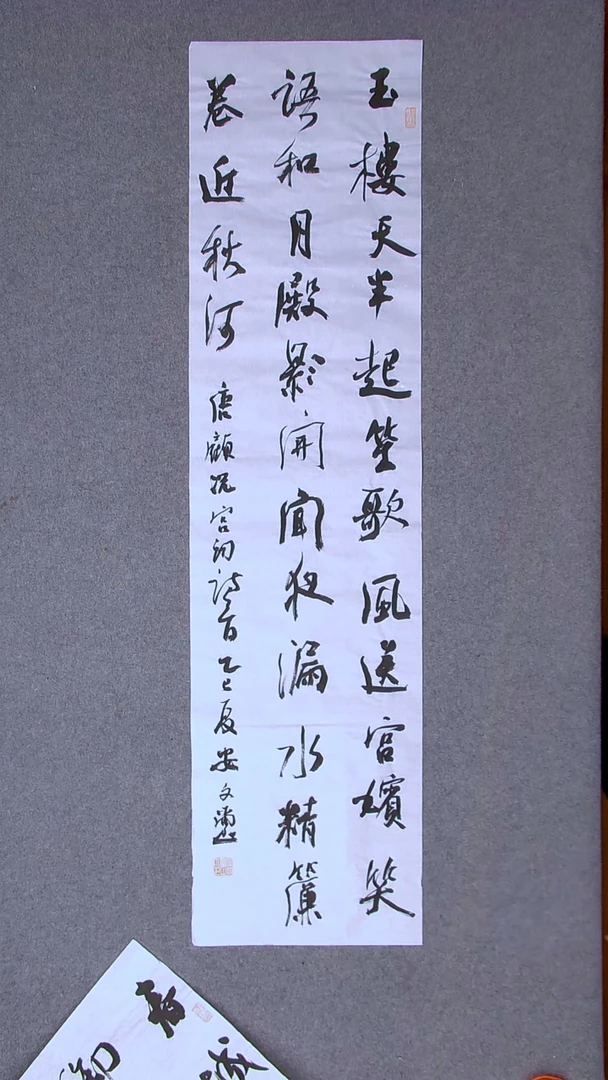 玉樓天半起笙歌風送宮嬪笑
語和月殿影開聞夜漏水精簾
卷近秋河
唐顧況宮詞詩一首乙巳夏安文